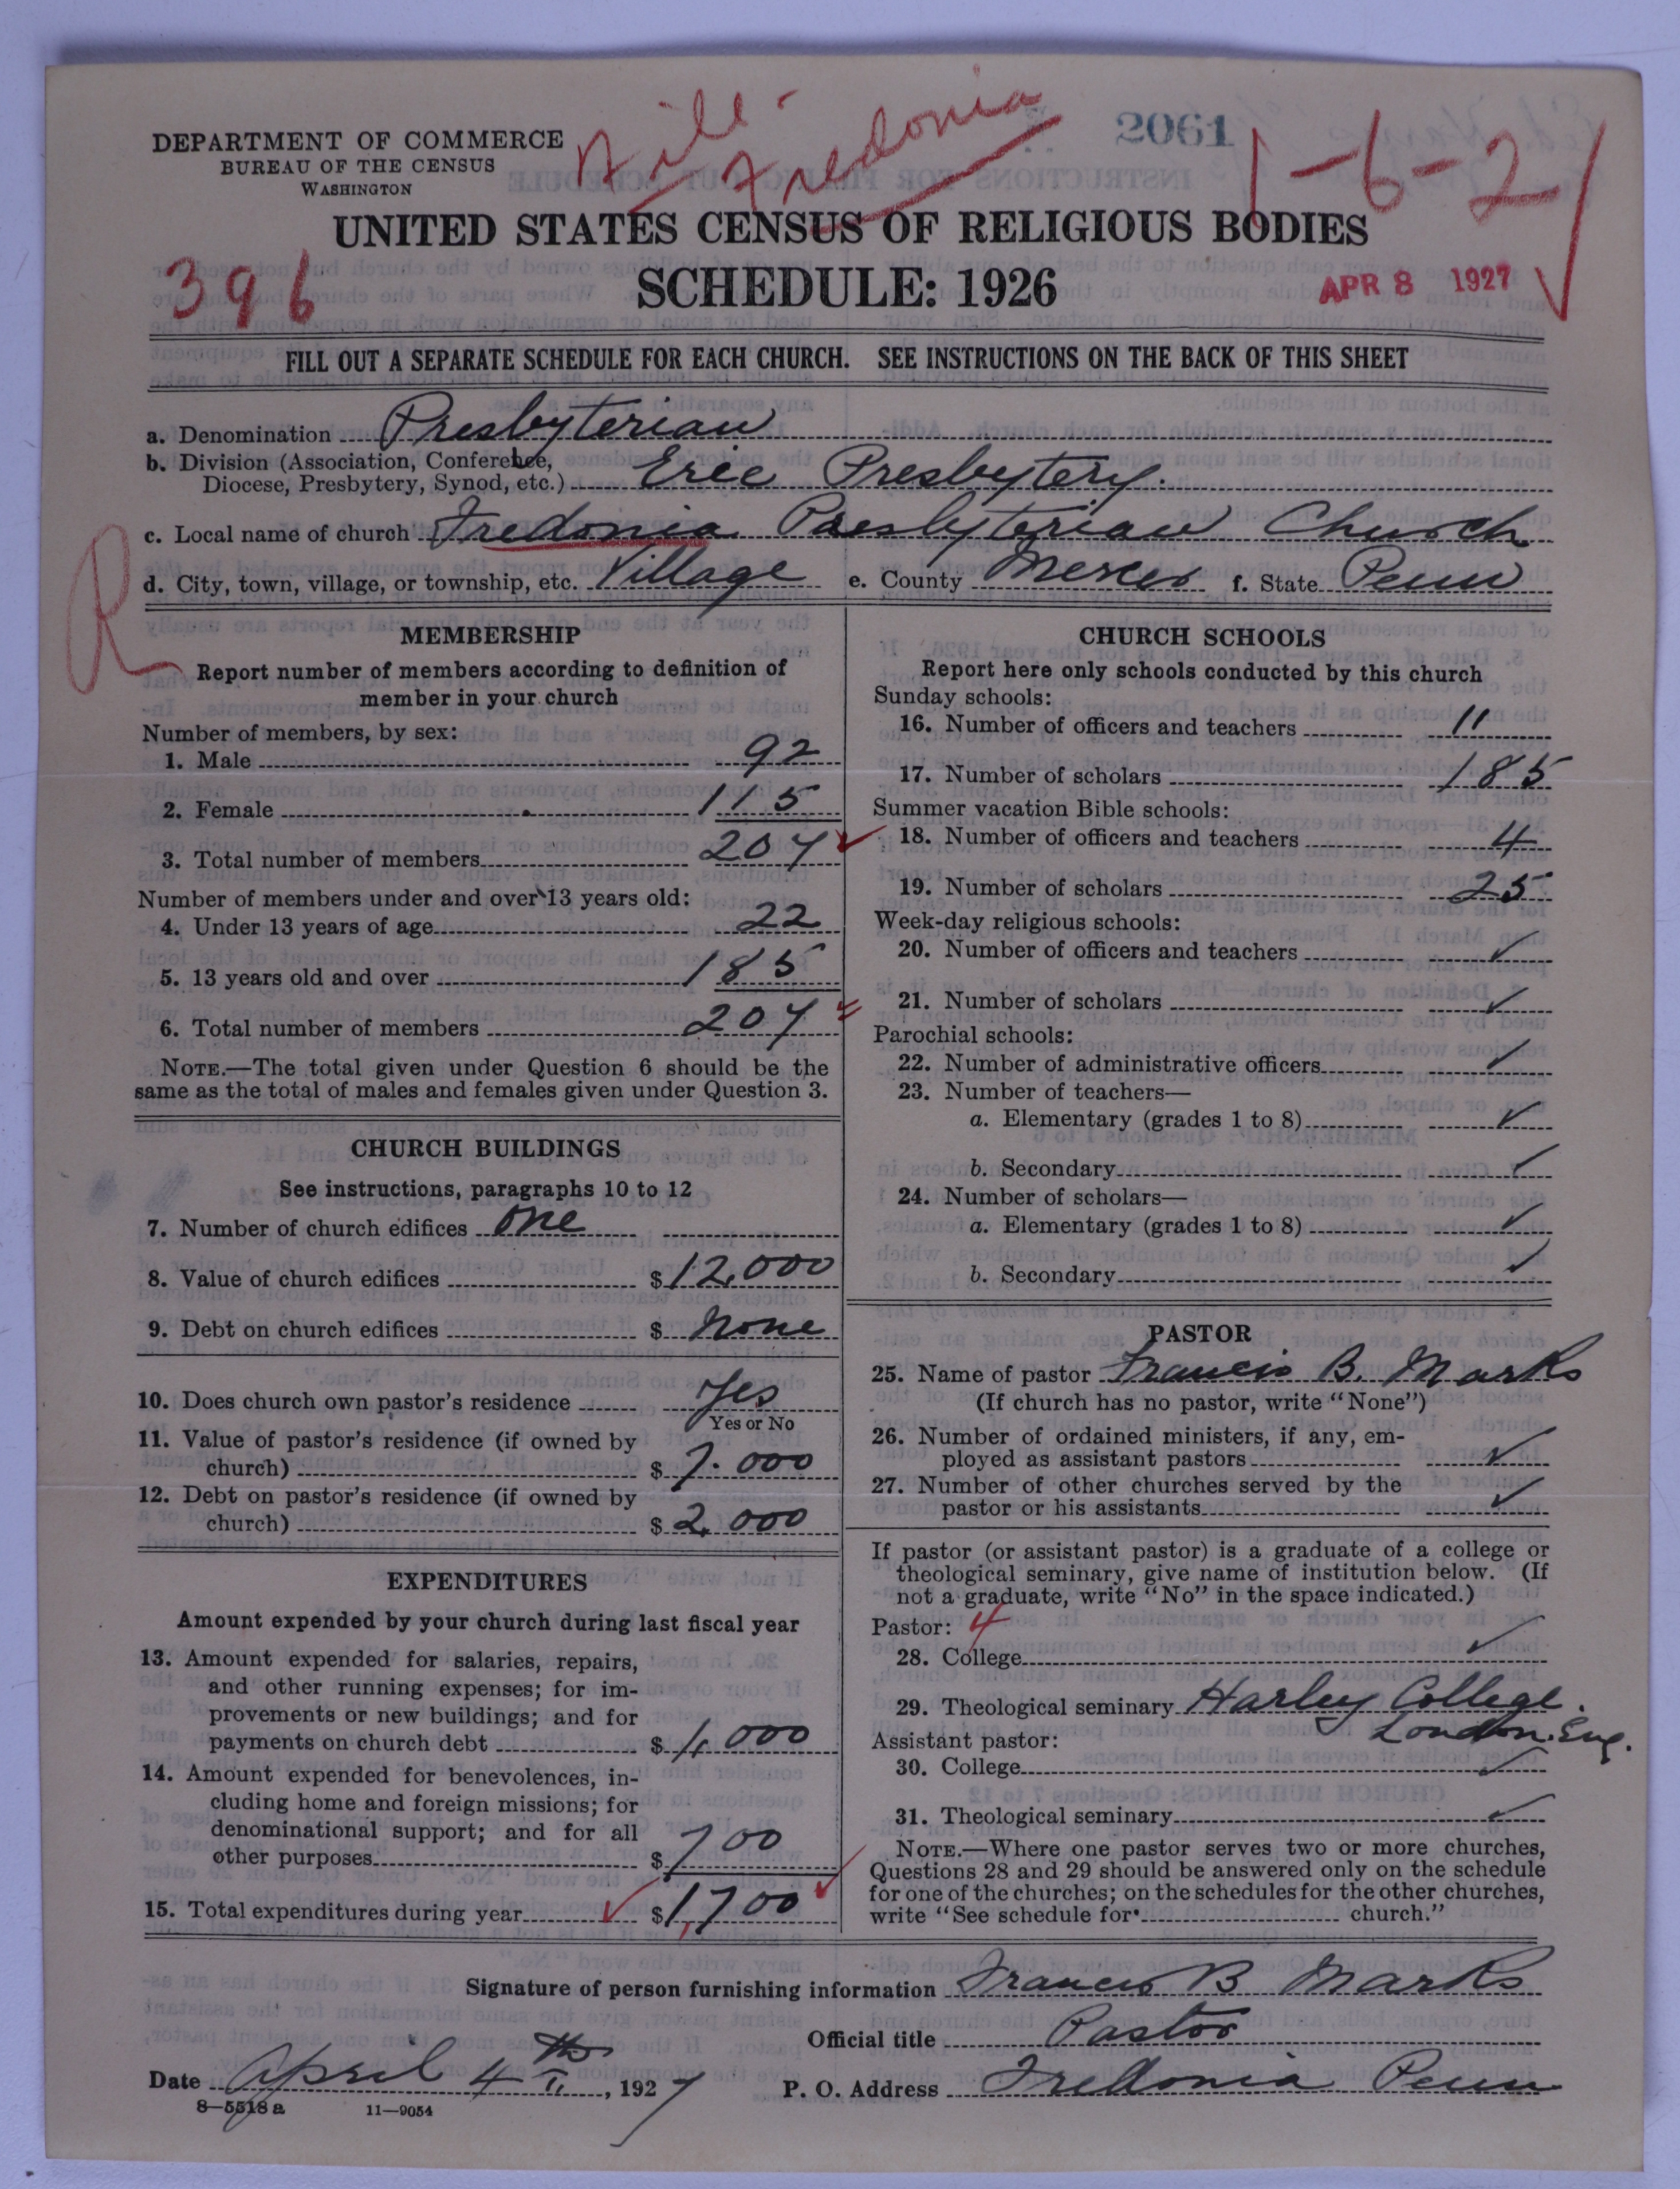 Vill - Fredonia
2061
1-6-21
DEPARTMENT OF COMMERCE
BUREAU OF THE CENSUS
WASHINGTON
UNITED STATES CENSUS OF RELIGIOUS BODIES
396
SCHEDULE: 1926
APR 8 1927
FILL OUT A SEPARATE SCHEDULE FOR EACH CHURCH. SEE INSTRUCTIONS ON THE BACK OF THIS SHEET
a. Denomination Presbyterian
b. Division (Association, Conference, Diocese, Presbytery, Synod, etc.) Erie Presbytery.
c. Local name of church Fredonia Presbyterian Church
R
d. City, town, village, or township, etc. Village e. County Mercer f. State Penn
MEMBERSHIP
Report number of members according to definition of
member in your church
Number of members, by sex:
1. Male 92
2. Female 115
3. Total number of members 207 ✓
Number of members under and over 13 years old:
4. Under 13 years of age 22
5. 13 years old and over 185
6. Total number of members 207
NOTE.—The total given under Question 6 should be the
same as the total of males and females given under Question 3.
CHURCH BUILDINGS
See instructions, paragraphs 10 to 12
7. Number of church edifices one
8. Value of church edifices $ 12,000
9. Debt on church edifices $ None
10. Does church own pastor's residence Yes
Yes or No
11. Value of pastor's residence (if owned by
church) $ 7.000
12. Debt on pastor's residence (if owned by
church) $ 2,000
EXPENDITURES
Amount expended by your church during last fiscal year
13. Amount expended for salaries, repairs,
and other running expenses; for im-
provements or new buildings; and for
payments on church debt $ 1,000
14. Amount expended for benevolences, in-
cluding home and foreign missions; for
denominational support; and for all
other purposes $ 700
15. Total expenditures during year ✓ $ 1,700 ✓
CHURCH SCHOOLS
Report here only schools conducted by this church
Sunday schools:
16. Number of officers and teachers 11
17. Number of scholars 185
Summer vacation Bible schools:
18. Number of officers and teachers 4
19. Number of scholars 25
Week-day religious schools:
20. Number of officers and teachers ✓
21. Number of scholars ✓
Parochial schools:
22. Number of administrative officers ✓
23. Number of teachers—
a. Elementary (grades 1 to 8) ✓
b. Secondary ✓
24. Number of scholars—
a. Elementary (grades 1 to 8) ✓
b. Secondary ✓
PASTOR
25. Name of pastor Francis B. Marks
(If church has no pastor, write "None")
26. Number of ordained ministers, if any, em-
ployed as assistant pastors ✓
27. Number of other churches served by the
pastor or his assistants ✓
If pastor (or assistant pastor) is a graduate of a college or
theological seminary, give name of institution below. (If
not a graduate, write "No" in the space indicated.)
Pastor: 4
28. College ✓
29. Theological seminary Harley College.
London. Eng.
Assistant pastor:
30. College ✓
31. Theological seminary ✓
NOTE.—Where one pastor serves two or more churches,
Questions 28 and 29 should be answered only on the schedule
for one of the churches; on the schedules for the other churches,
write "See schedule for church."
Signature of person furnishing information Francis B Marks
Official title Pastor
Date April 4th, 1927 P. O. Address Fredonia Penn
8—5518 a 11—9054